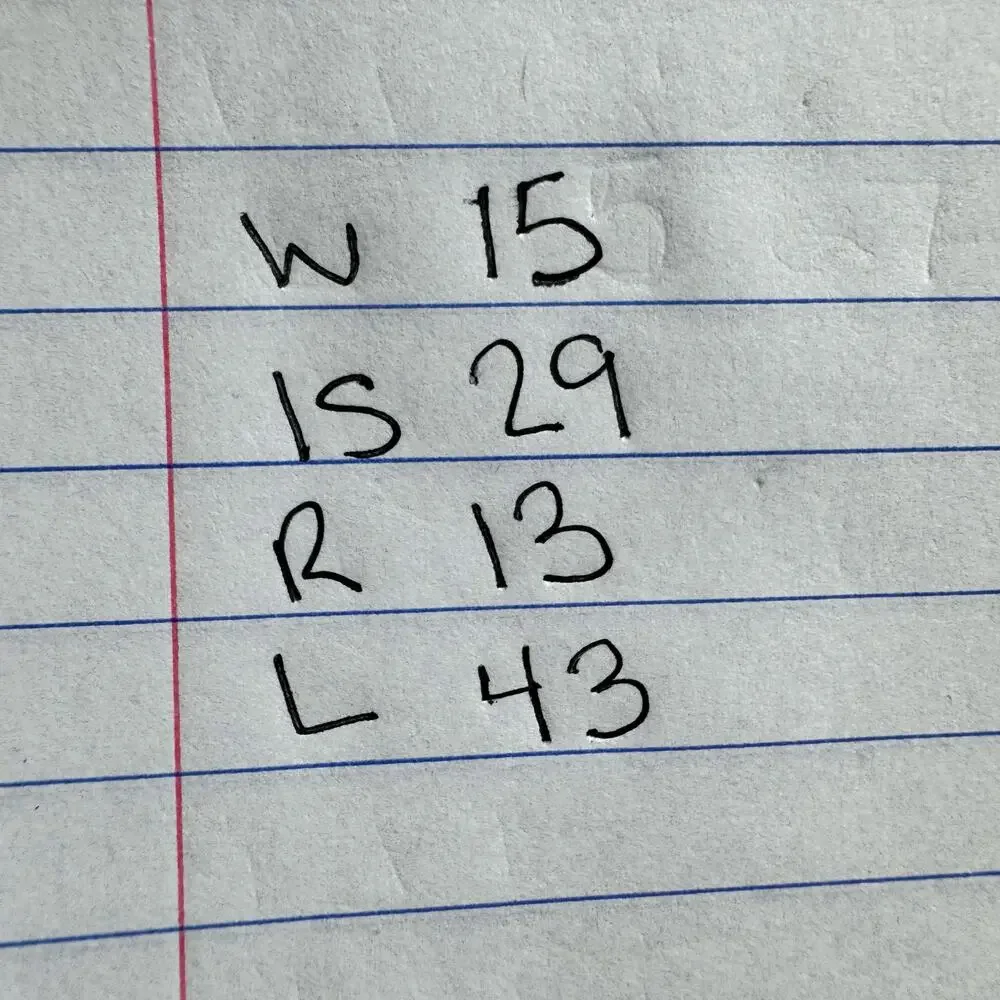 W 15
IS 29
R 13
L 43